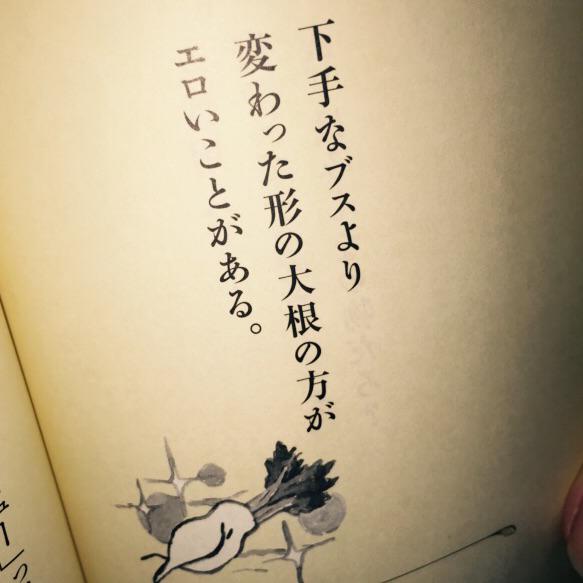 下手なブスより
変わった形の大根の方が
エロいことがある。